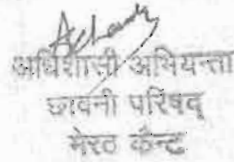 अधिशासी अभियन्ता
छावनी परिषद्
मेरठ कैन्ट